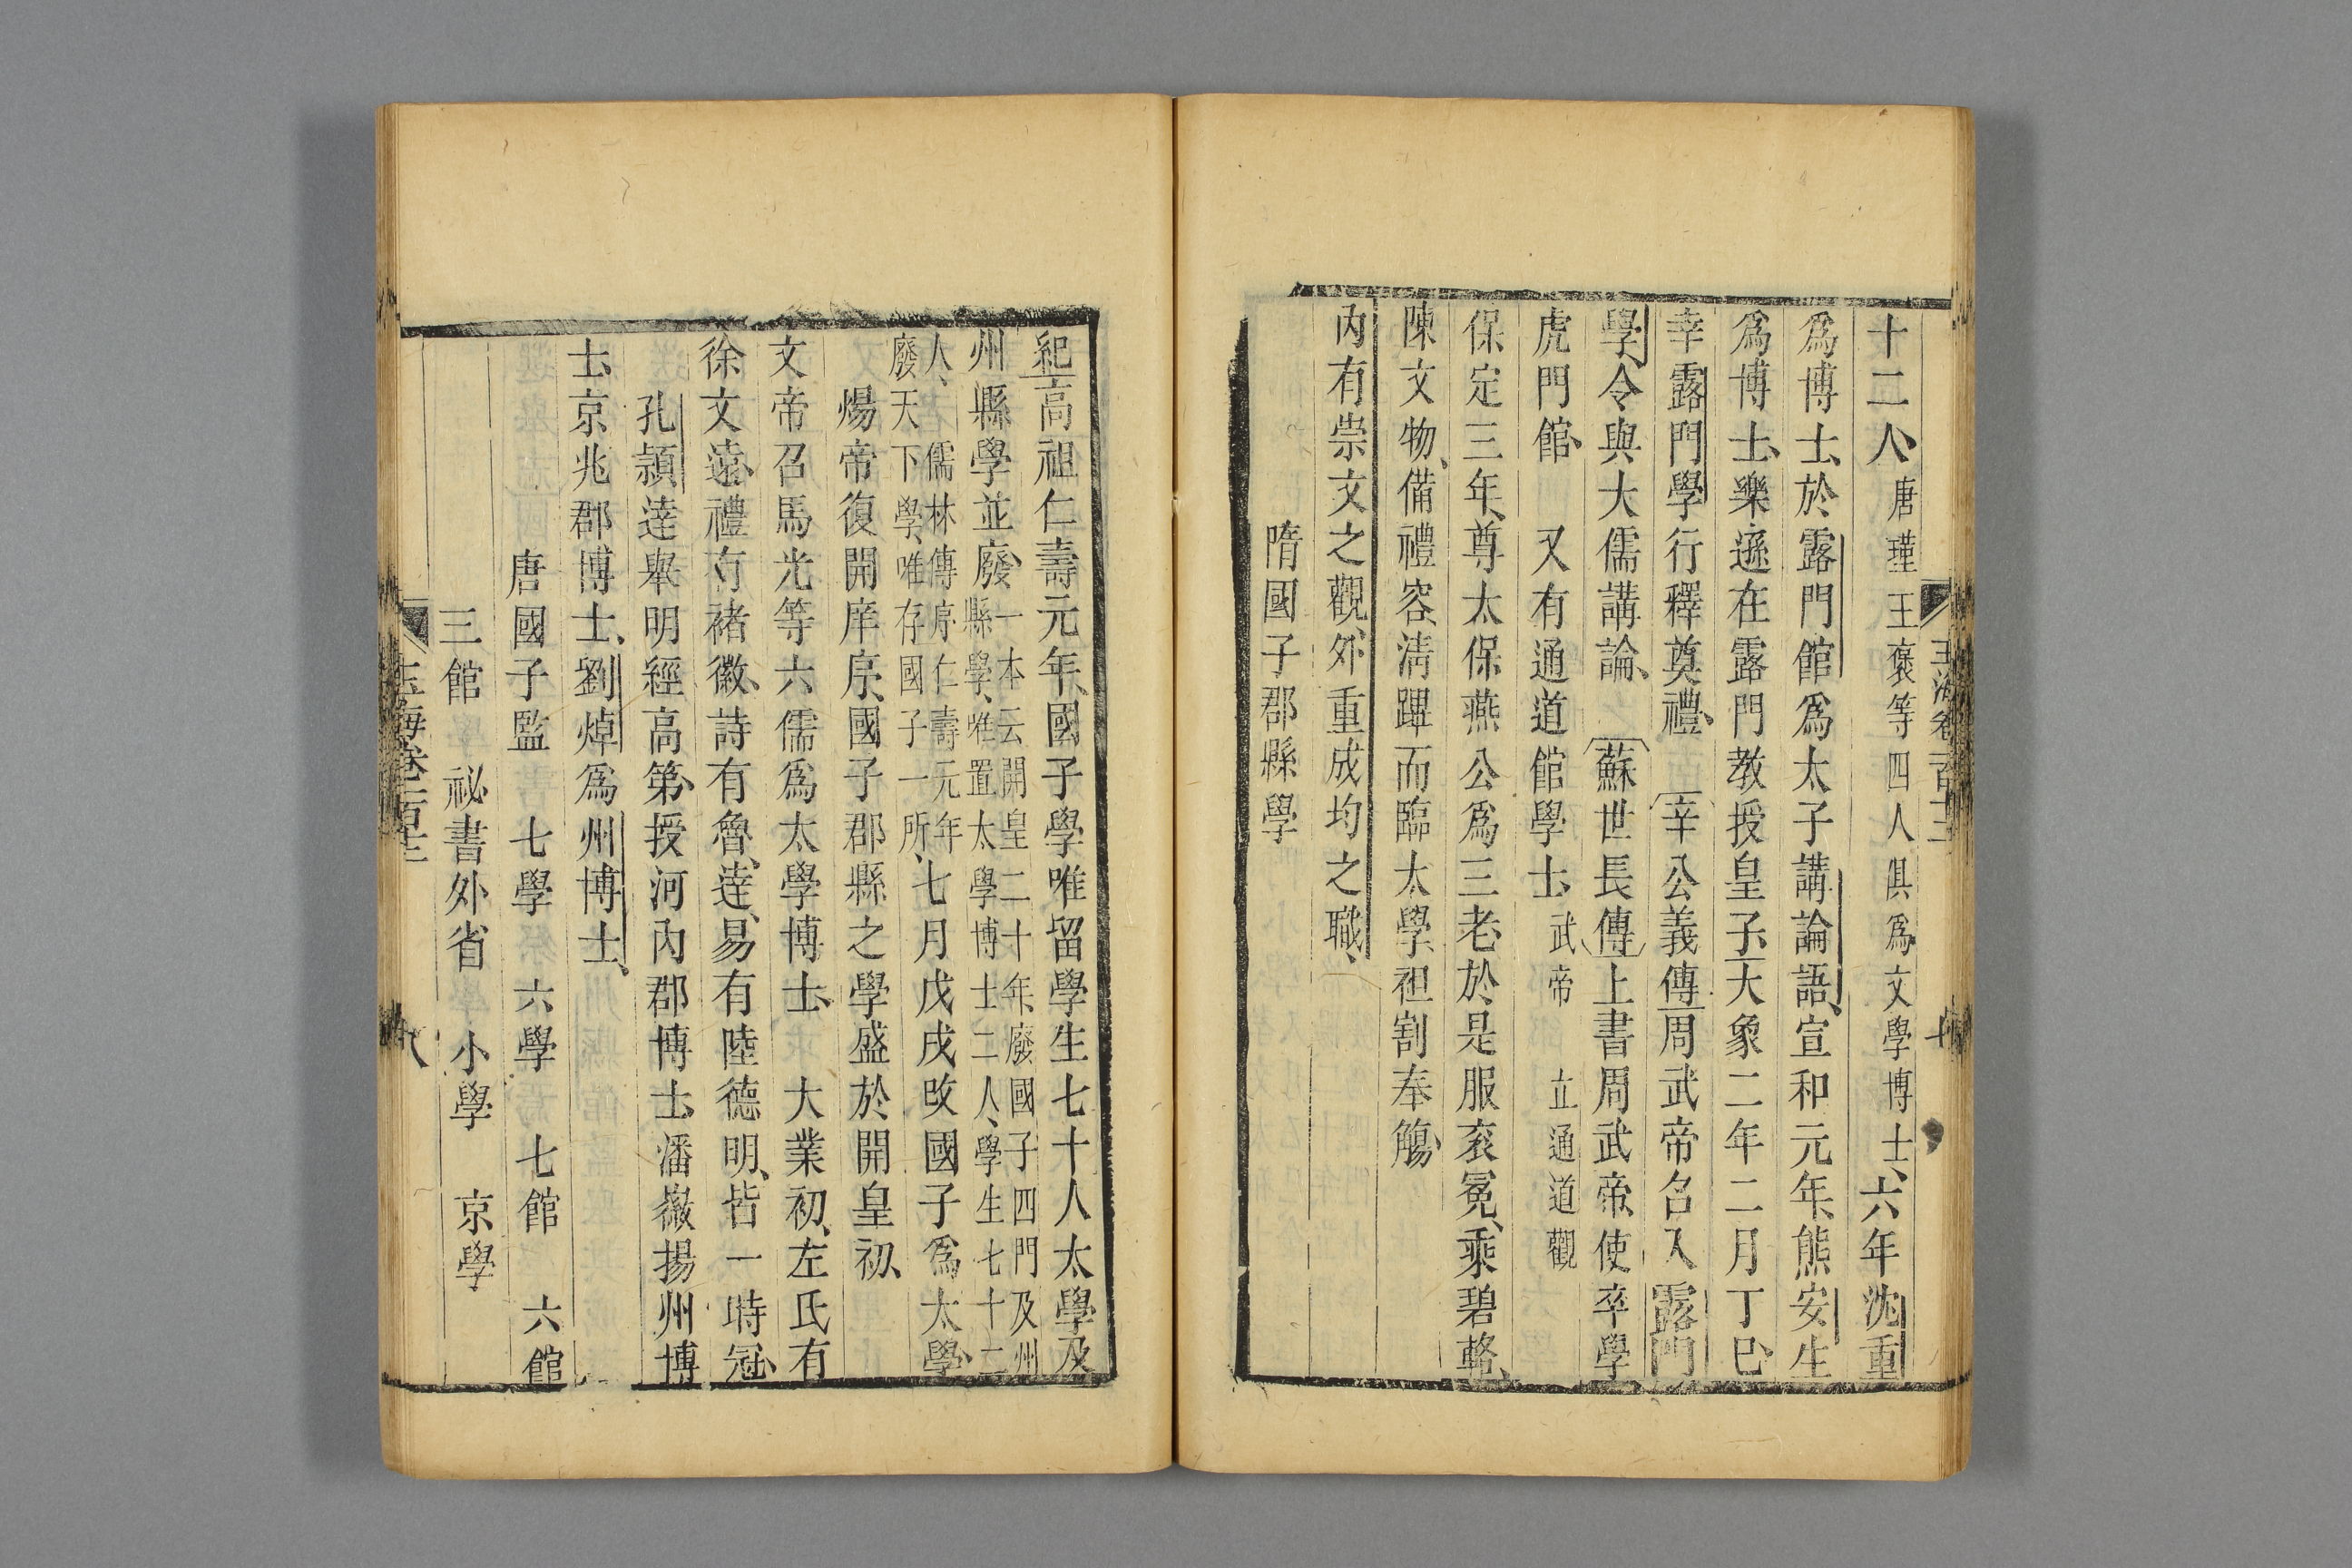 十二人唐瑾王褒等四人俱爲文學博士六年沈重
爲博士於露門館爲太子講論語宣和元年熊安生
爲博士樂遜在露門教授皇子大象二年二月丁巳
幸露門學行釋奠禮辛公義傳周武帝召入露門
學令與大儒講論蘇世長傳上書周武帝使卒學
虎門館又有通道館學士武帝立通道觀
保定三年尊太保燕公爲三老於是服衮冕乘碧輅
陳文物備禮容淸蹕而臨太學袒割奉觴
内有崇文之觀外重成均之職
隋國子郡縣學
紀高祖仁壽元年國子學唯留學生七十人太學及
州縣學並廢一本云開皇二十年廢國子四門及州
縣學唯置太學博士二人學生七十二
人儒林傳序仁壽元年
廢天下學唯存國子一所七月戊戌改國子爲太學
煬帝復開庠序國子郡縣之學盛於開皇初
文帝召馬光等六儒爲太學博士大業初左氏有
徐文遠禮有褚徽詩有魯達易有陸德明皆一時冠
孔頴達舉明經高第授河内郡博士潘徽揚州博
士京兆郡博士劉焯爲州博士
唐國子監 七學 六學 七館 六館
三館 祕書外省 小學 京學
玉海卷一百十二
八